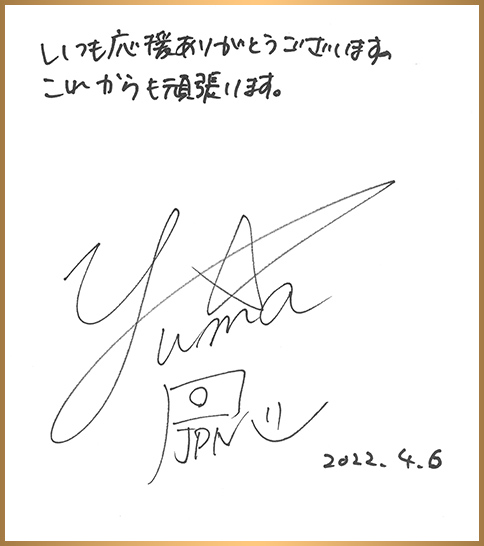 いつも応援ありがとうございます。
これからも頑張ります。
Yuma
JPN
2022.4.6